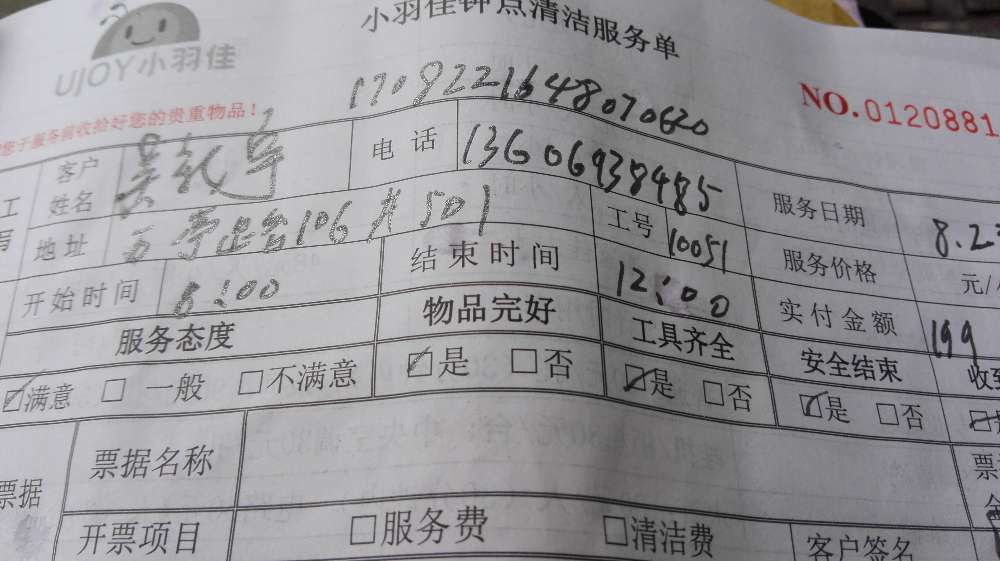 小羽佳钟点清洁服务单
UJOY小羽佳
1708221648070620
NO.0120881
您于服务前收拾好您的贵重物品!
客户姓名 吴 电话 13606938485 服务日期 8.2
地址 106 501 工号 10051 服务价格 元/
开始时间 8:00 结束时间 12:00 实付金额 199
服务态度 物品完好 工具齐全 安全结束 收到
☑满意 □一般 □不满意 ☑是 □否 ☑是 □否 ☑是 □否
票据 票据名称 票
开票项目 □服务费 □清洁费 客户签名